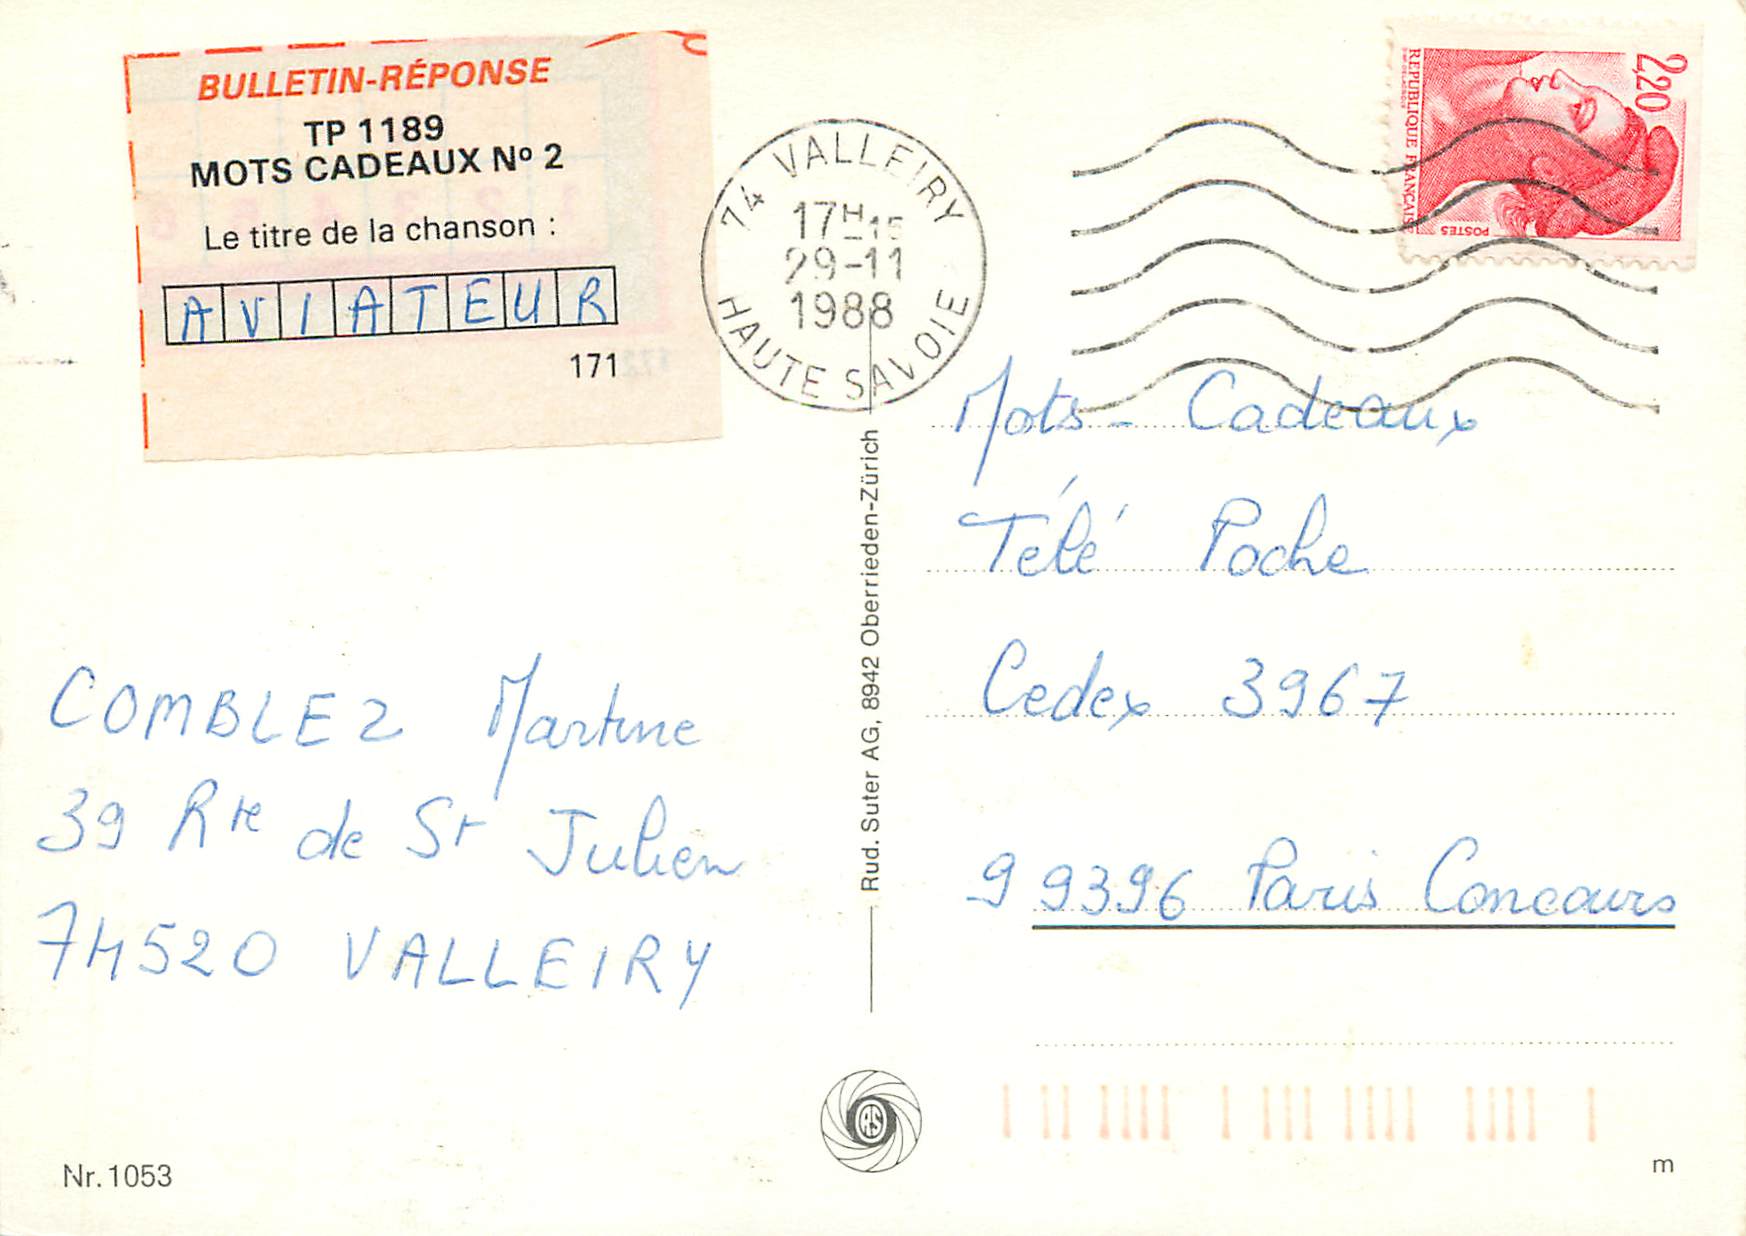 BULLETIN-RÉPONSE
TP 1189
MOTS CADEAUX Nº 2
Le titre de la chanson :
AVIATEUR
171
74 VALLEIRY
17H-15
29-11
1988
HAUTE SAVOIE
2,20
REPUBLIQUE FRANÇAISE
POSTES
Mots - Cadeaux
Télé Poche
Cedex 3967
99396 Paris Concours
COMBLEZ Martine
39 Rte de St Julien
74520 VALLEIRY
Rud. Suter AG, 8942 Oberrieden-Zürich
RS
Nr. 1053
m